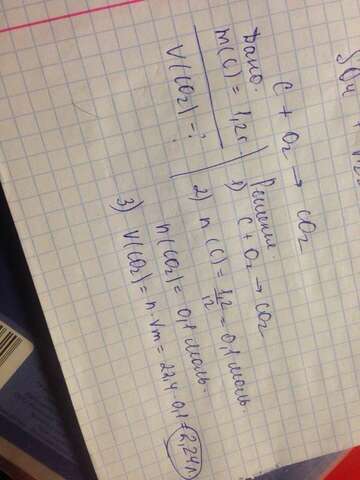 C + O₂ → CO₂
Дано:
m(C) = 1,2г
V(CO₂) = ?
Решение
1) C + O₂ → CO₂
2) n(C) = 1,2/12 = 0,1 моль
n(CO₂) = 0,1 моль.
3) V(CO₂) = n · Vm = 22,4 · 0,1 = 2,24л